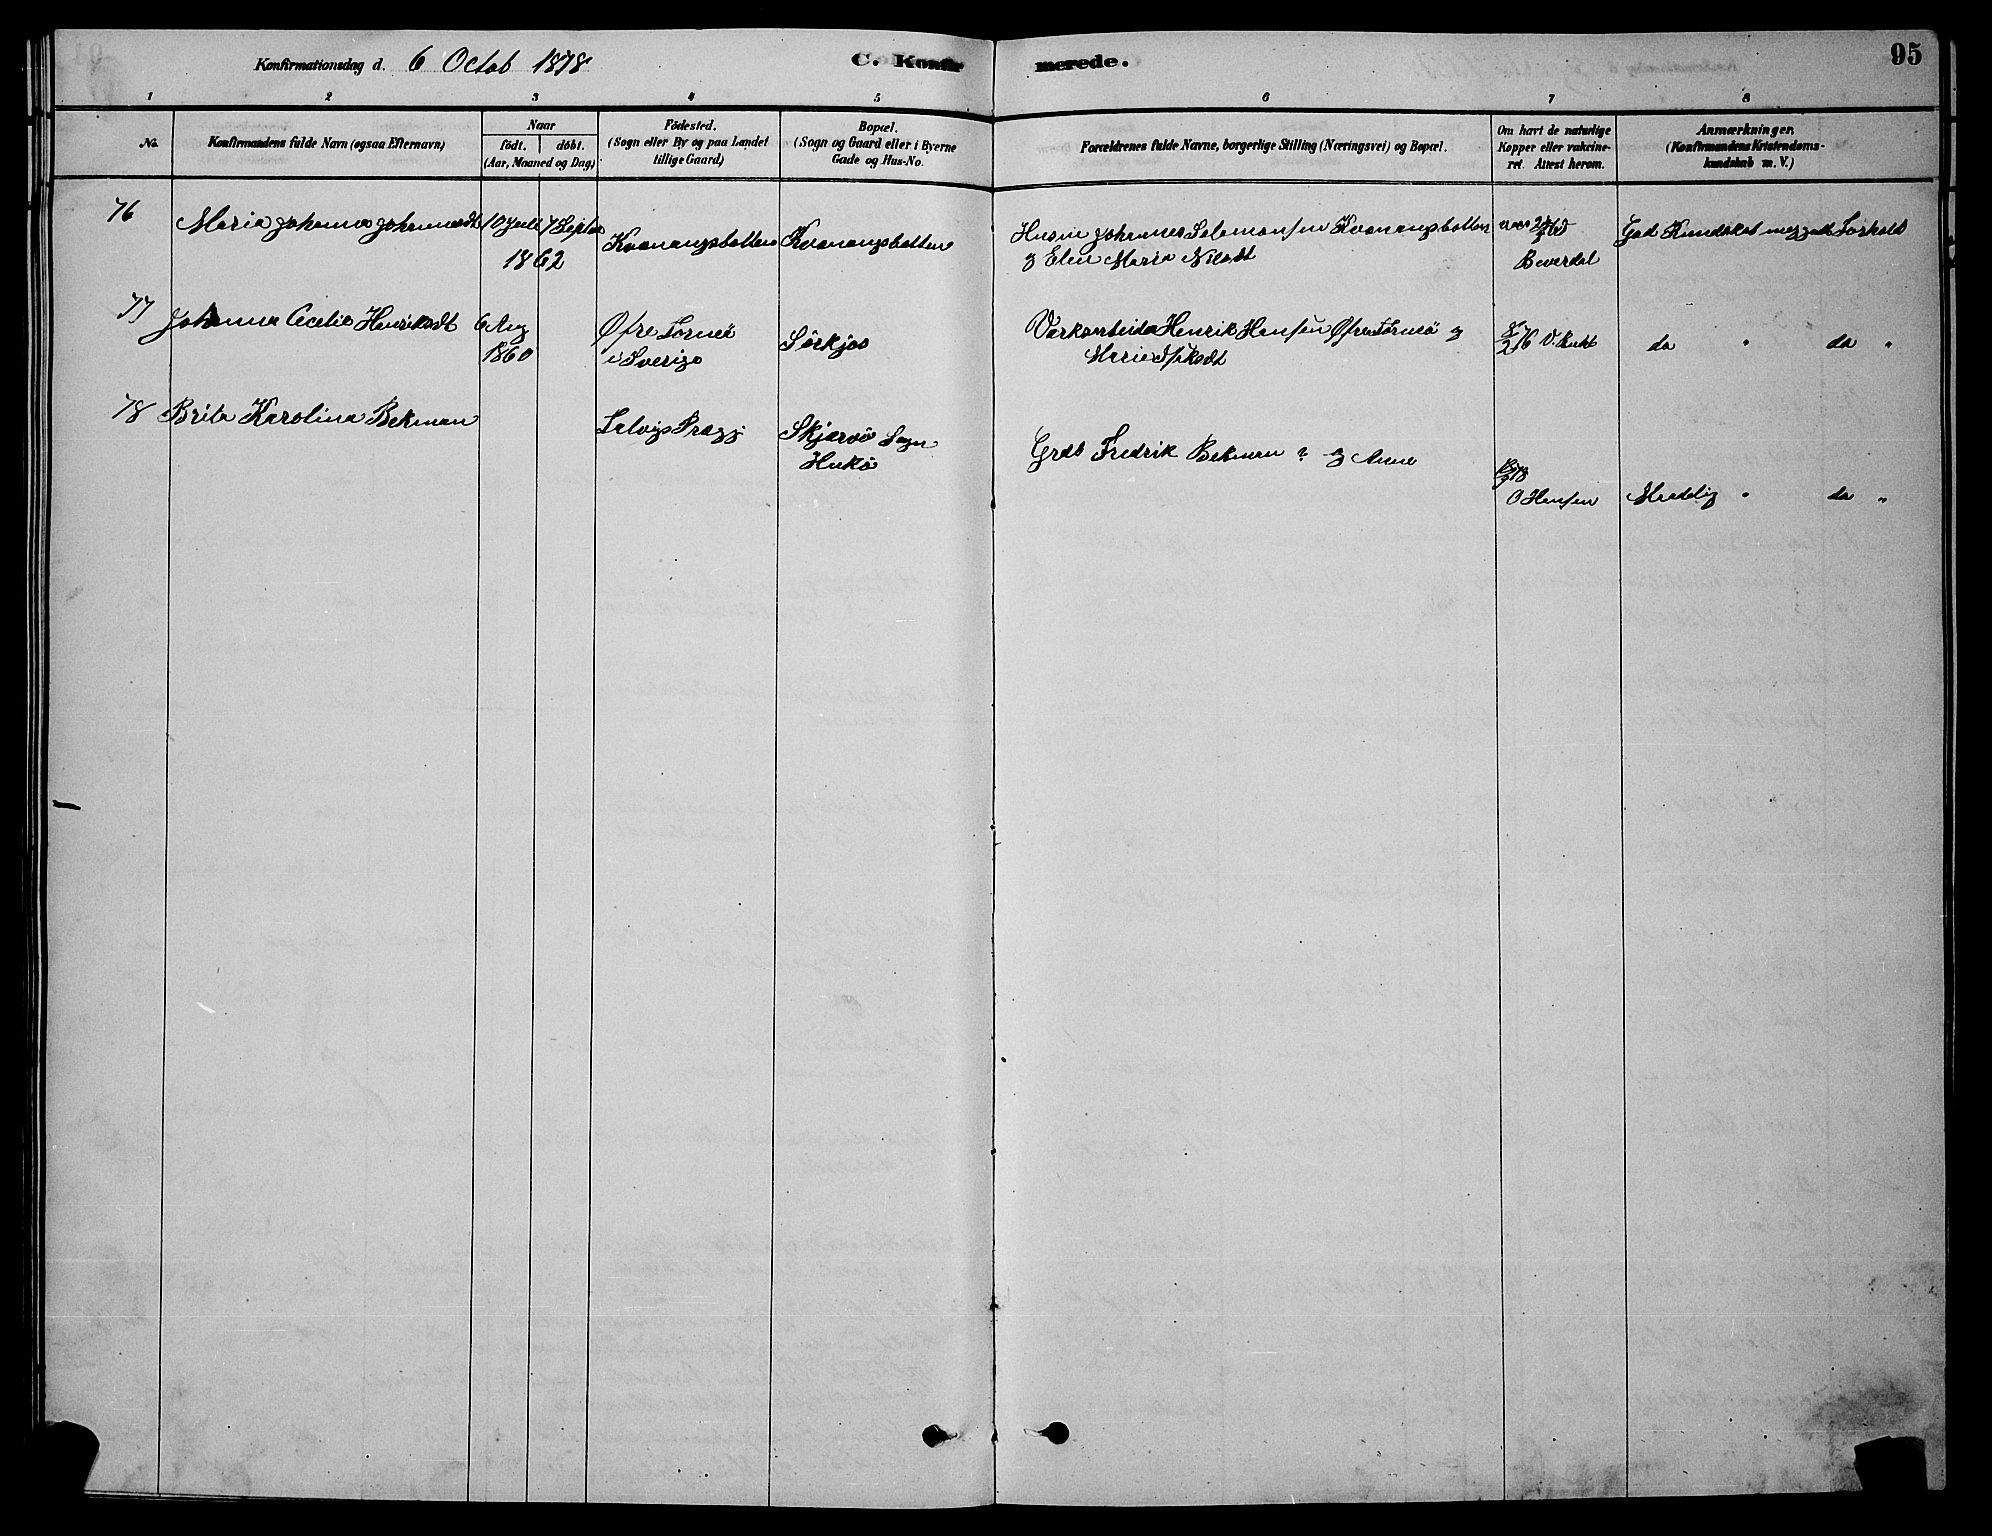 Konfirmationsdag d. 6 Octob 1878
C. Konfirmerede.
95
1 2 3 4 5 6 7 8
No.
Konfirmandens fulde Navn (ogsaa Efternavn)
Naar
födt. döbt.
(Aar, Maaned og Dag)
Födested.
(Sogn eller By og paa Landet
tillige Gaard)
Bopæl.
(Sogn og Gaard eller i Byerne
Gade og Hus-No.
Forældrenes fulde Navne, borgerlige Stilling (Næringsvei) og Bopæl.
Om havt de naturlige
Kopper eller vakcine-
ret. Attest herom.
Anmærkninger.
(Konfirmandens Kristendoms-
kundskab m. V.)
76 Maria Johanna Johannesdt 10 Juli 7 Septbr
1862
Kvænangsbotten
Kvænangsbotten
Husm Johannes Salamonsen Kvænangsbotten
og Elen Maria Nilsdt
Beverdal
God Kundskab med godt Forhold
77 Johanna Cecelie Henriksdt 6 Aug
1860
Øfre Torneå
i Sverige
Sörkjos
Værksarbeider Henrik Hansen Øfre Torneå og
Marie Isaksdt
da " da "
78 Brita Karolina Bekman
Talvigs Præg
Skjærvö Sogn
Hukö
Grdb Fredrik Bekman ? og Anne
O Hansen
Maadelig " da "